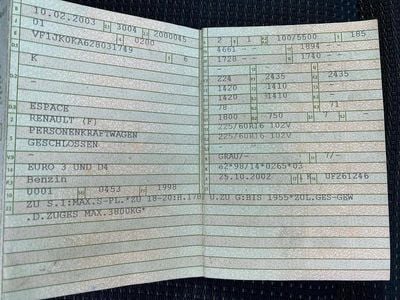 10.02.2003 3004 2000045
01
VF1JK0KA628031749 6
4 0200
K -
-
ESPACE
RENAULT (F)
PERSONENKRAFTWAGEN
GESCHLOSSEN
-
EURO 3 UND D4
Benzin
0001 0453 1998
ZU S.1:MAX.S-PL.*ZU 18-20:H.178
.D.ZUGES MAX.3800KG*
2 1 100/5500 185
4661 - - 1894 - -
1728 - - 1740 - -
-
224 2435 2435
1420 1410 -
1420 1410 -
78 78 71
1800 750 7 -
225/60R16 102V
225/60R16 102V
- -
GRAU/- 7/-
e2*98/14*0265*03
25.10.2002 K UF261246
U.ZU G:BIS 1955*ZUL.GES-GEW